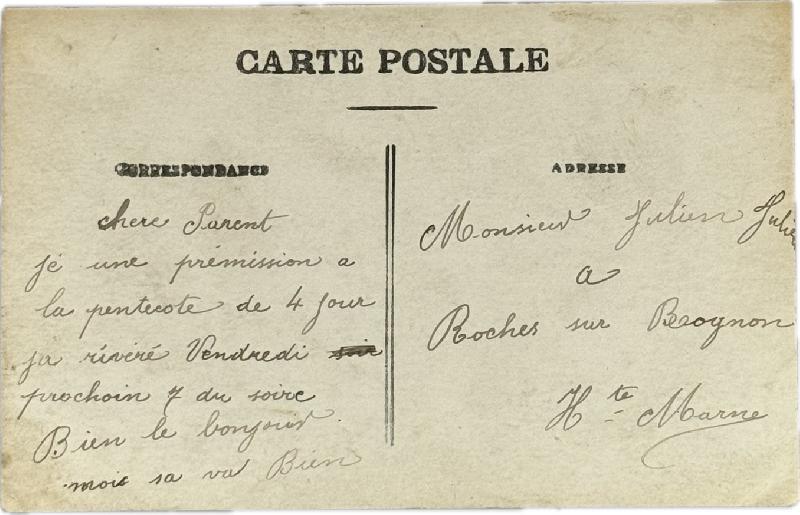 CARTE POSTALE
CORRESPONDANCE
ADRESSE
chere Parent
jé une prémission a
la pentecote de 4 jour
ja rivéré Vendredi soir
prochoin 7 du soire
Bien le bonjour
mois sa va Bien
Monsieur Julien Julien
a
Roches sur Rognon
Hte Marne